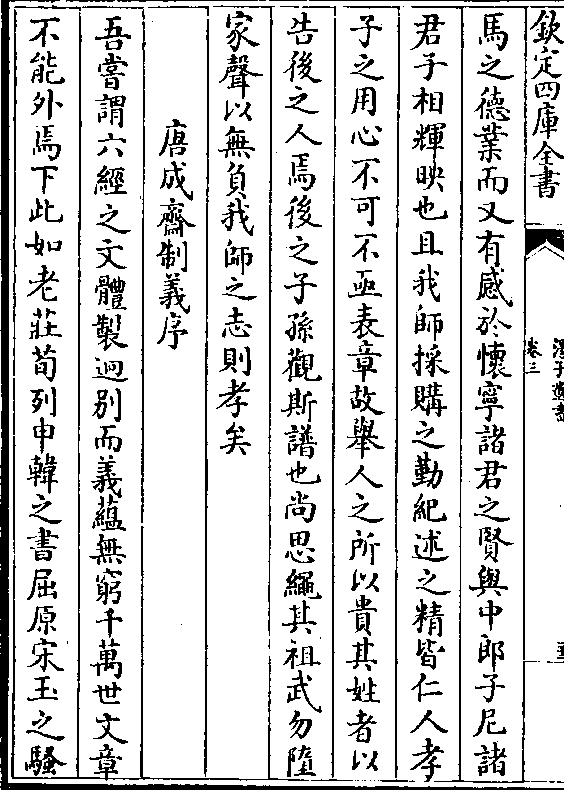 欽定四庫全書
卷三
馬之德業而又有感於懷寧諸君之賢與中郎子尼諸
君子相輝映也且我師採購之勤紀述之精皆仁人孝
子之用心不可不亟表章故舉人之所以貴其姓者以
告後之人焉後之子孫觀斯譜也尚思繩其祖武勿隳
家聲以無負我師之志則孝矣
唐成齋制義序
吾嘗謂六經之文體製迥別而義藴無窮千萬世文章
不能外焉下此如老莊荀列申韓之書屈原宋玉之騷